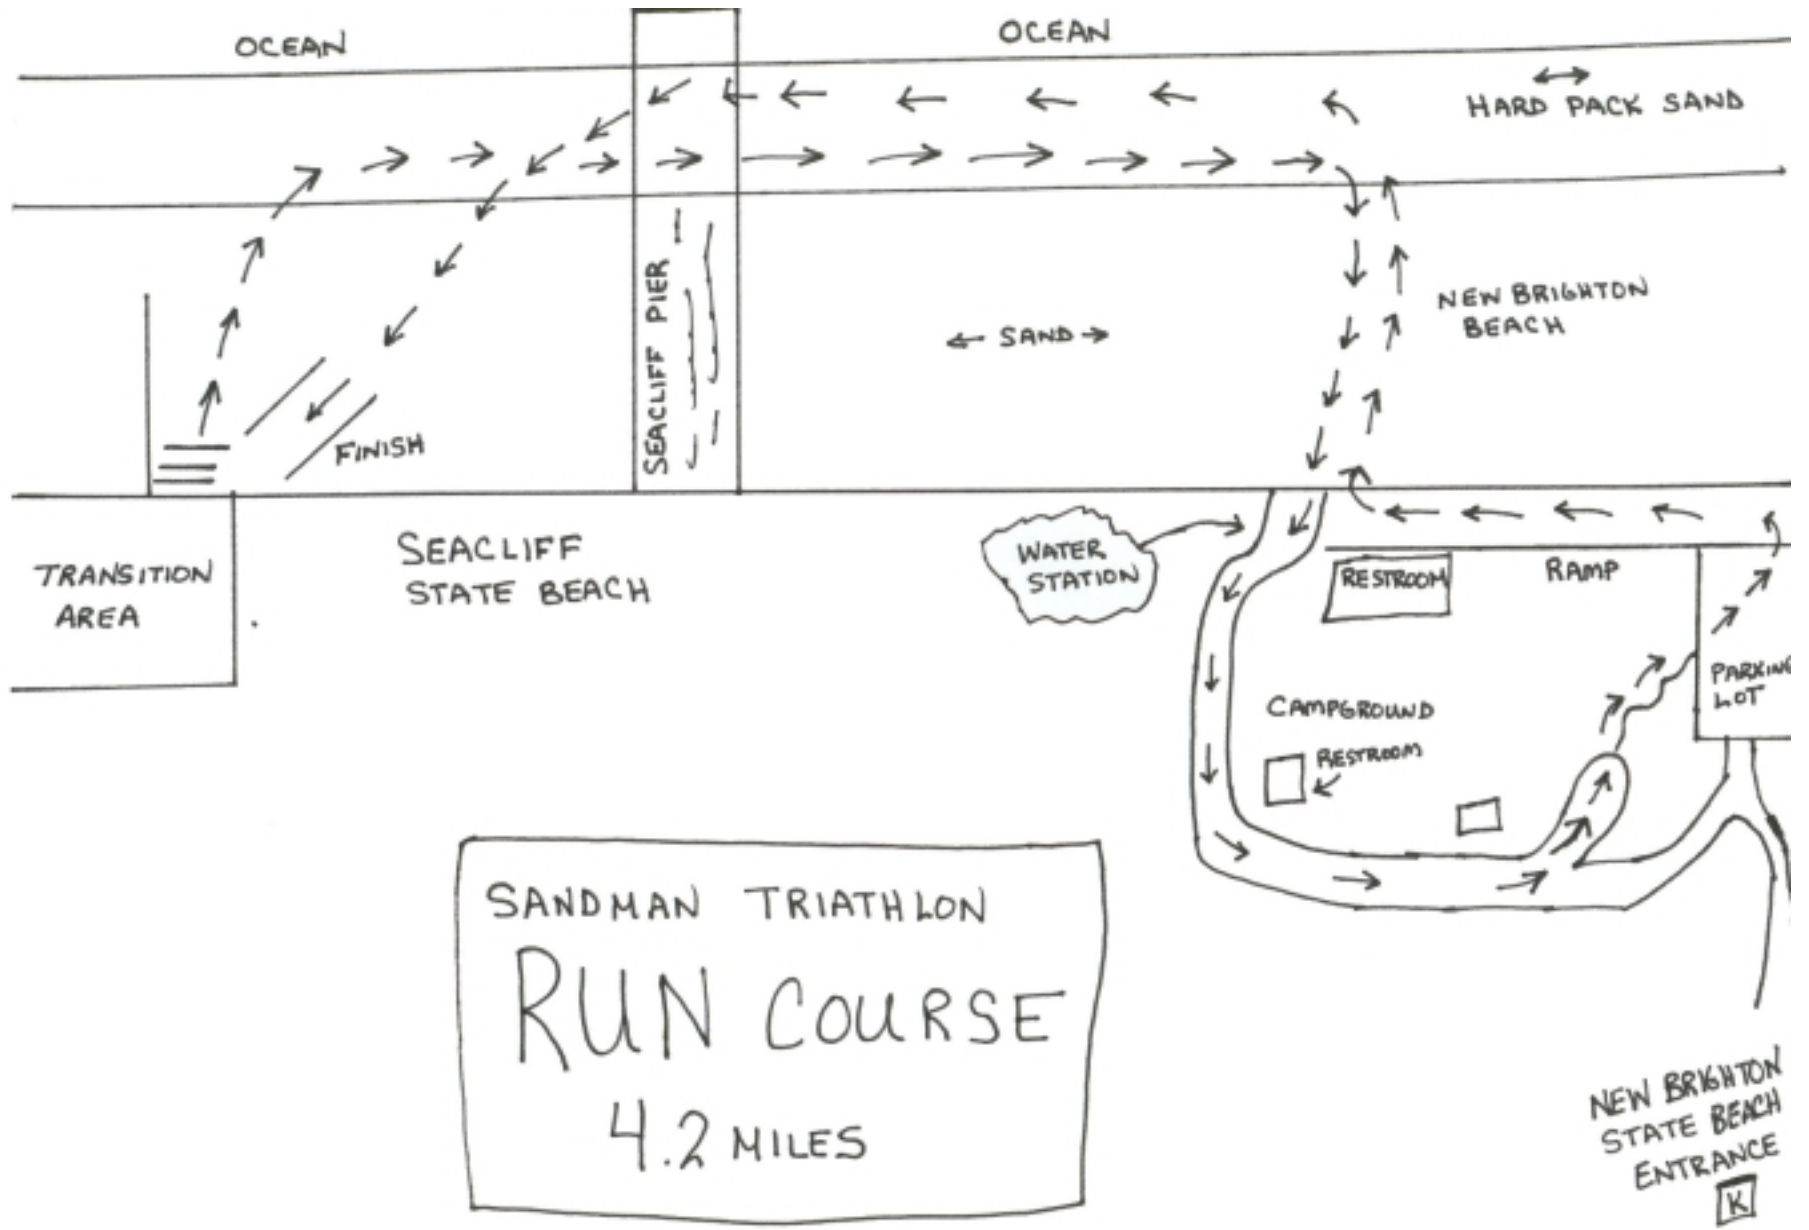 OCEAN
OCEAN
HARD PACK SAND
SEACLIFF PIER
SAND
NEW BRIGHTON
BEACH
FINISH
TRANSITION
AREA
SEACLIFF
STATE BEACH
WATER
STATION
RESTROOM
RAMP
PARKING
LOT
CAMPGROUND
RESTROOM
SANDMAN TRIATHLON
RUN COURSE
4.2 MILES
NEW BRIGHTON
STATE BEACH
ENTRANCE
K